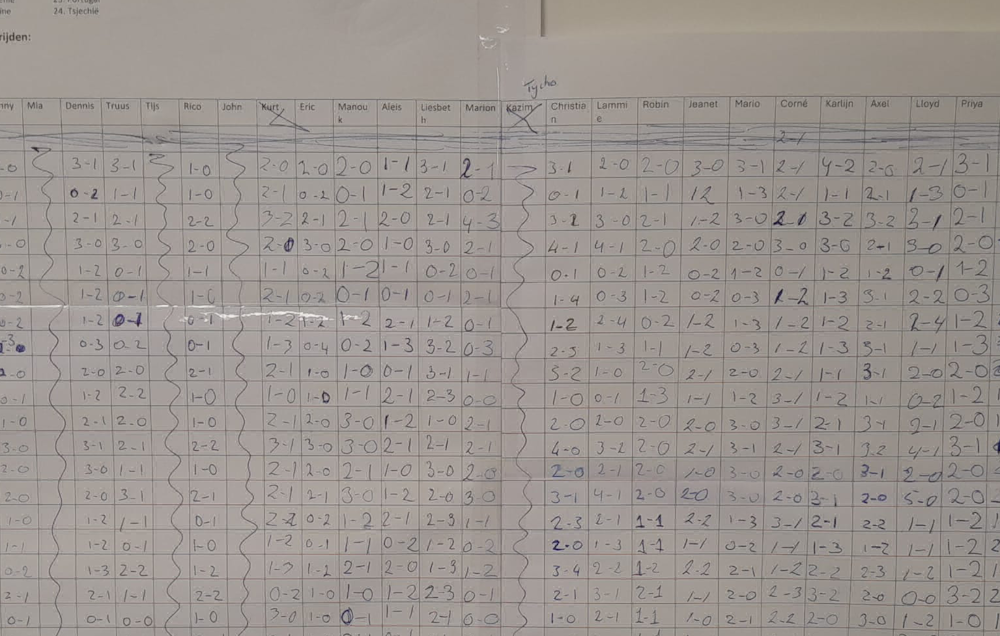 24. Tsjechië
rijden:
Tycho
Mia Dennis Truus Tijs Rico John Kurt Eric Manou Aleis Liesbet Marion Kazim Christia Lammi Robin Jeanet Mario Corné Karlijn Axel Lloyd Priya
k h n e
2-1
3-1 3-1 1-0 2-0 2-0 2-0 1-1 3-1 2-1 3-1 2-0 2-0 3-0 3-1 2-1 4-2 2-0 2-1 3-1
0-2 1-1 1-0 2-1 0-2 0-1 1-2 2-1 0-2 0-1 1-2 1-1 12 1-3 2-1 1-1 2-1 1-3 0-1
2-1 2-1 2-2 3-2 2-1 2-1 2-0 2-1 4-3 3-0 2-1 1-2 3-0 2-1 3-2 3-2 3-1 2-1
3-0 3-0 2-0 2-0 3-0 2-0 1-0 3-0 2-1 4-1 4-1 2-0 2-0 2-0 3-0 3-0 2-1 3-0 2-0
0-2 1-2 0-1 1-1 1-1 0-2 1-2 1-1 0-2 0-1 0-1 0-2 1-2 0-2 1-2 0-1 1-2 1-2 0-1 1-2
1-2 0-1 1-0 2-1 0-2 0-1 0-1 0-1 2-1 1-4 0-3 1-2 0-2 0-3 1-2 1-3 3-1 2-2 0-3
0-2 1-2 0-1 0-1 1-2 1-2 1-2 2-1 1-2 0-1 1-2 2-4 0-2 1-2 1-3 1-2 1-2 2-1 2-4 1-2
0-3 0-2 0-1 1-3 0-4 0-2 1-3 3-2 0-3 2-3 1-3 1-1 1-2 0-3 1-2 1-3 3-1 1-1 1-3
2-0 2-0 2-1 2-1 1-0 1-0 0-1 3-1 1-1 5-2 1-0 2-0 2-1 2-0 2-1 1-1 3-1 2-0 2-0
1-2 2-2 1-0 1-0 1-0 1-1 2-1 2-3 0-0 1-0 0-1 1-3 1-1 1-2 3-1 1-2 1-1 0-2 1-2
2-1 2-0 1-0 2-1 2-0 3-0 1-2 1-0 2-1 2-0 2-0 2-0 2-0 3-0 3-1 2-1 3-1 2-1 2-0
3-0 3-1 2-1 2-2 3-1 3-0 3-0 2-1 2-1 2-1 4-0 3-2 2-0 2-1 3-1 2-1 3-1 3-2 4-1 3-1
2-0 3-0 1-1 1-0 2-1 2-0 2-1 1-0 3-0 2-0 2-0 2-1 2-0 1-0 3-0 2-0 2-0 3-1 2-0 2-0
2-0 2-0 3-1 2-1 2-1 2-1 3-0 1-2 2-0 3-0 3-1 4-1 2-0 2-0 3-0 2-0 3-1 2-0 5-0 2-0
1-0 1-2 1-1 0-1 2-2 0-2 1-2 2-1 2-3 1-1 2-3 2-1 1-1 2-2 1-3 3-1 2-1 2-2 1-1 1-2
1-1 1-2 0-1 1-0 1-2 0-1 1-1 0-2 1-2 0-2 2-0 1-3 1-1 1-1 0-2 1-1 1-3 1-2 1-1 1-2
0-2 1-3 2-2 1-2 1-2 2-1 2-0 1-3 1-2 3-4 2-2 1-2 2-2 2-1 1-2 2-2 2-3 1-2 1-2
2-1 2-1 1-1 2-2 0-2 1-0 1-0 1-2 2-3 0-1 2-1 3-1 2-1 1-1 2-0 2-3 3-2 2-0 0-0 3-2
0-1 0-1 0-0 1-0 3-0 1-0 0-1 1-1 2-1 0-0 1-0 2-1 1-1 1-0 2-1 2-2 2-0 3-0 1-2 1-0